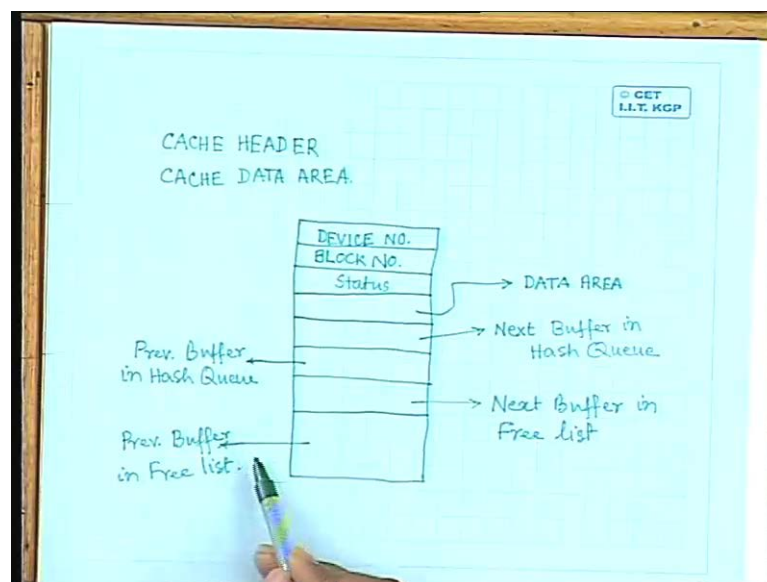 © CET
I.I.T. KGP
CACHE HEADER
CACHE DATA AREA.
DEVICE NO.
BLOCK NO.
Status
DATA AREA
Next Buffer in
Hash Queue
Prev. Buffer
in Hash Queue
Next Buffer in
Free list
Prev. Buffer
in Free list.